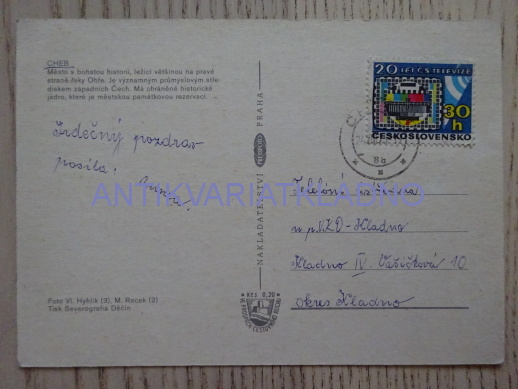 CHEB
Město s bohatou historií, ležící většinou na pravé
straně řeky Ohře. Je významným průmyslovým stře-
diskem západních Čech. Má chráněné historické
jádro, které je městskou památkovou rezervací.
Srdečný pozdrav
posílá.
ANTIKVARIATKLADNO
Foto Vl. Hyklík (3), M. Rocek (2)
Tisk Severografia Děčín
NAKLADATELSTVÍ PRESSFOTO PRAHA
Kčs 0,20
20 LET ČS. TELEVIZE
30
h
ČESKOSLOVENSKO
8b
Telefonní
Kladno
Kladno IV. Vašíčková 10
okres Kladno